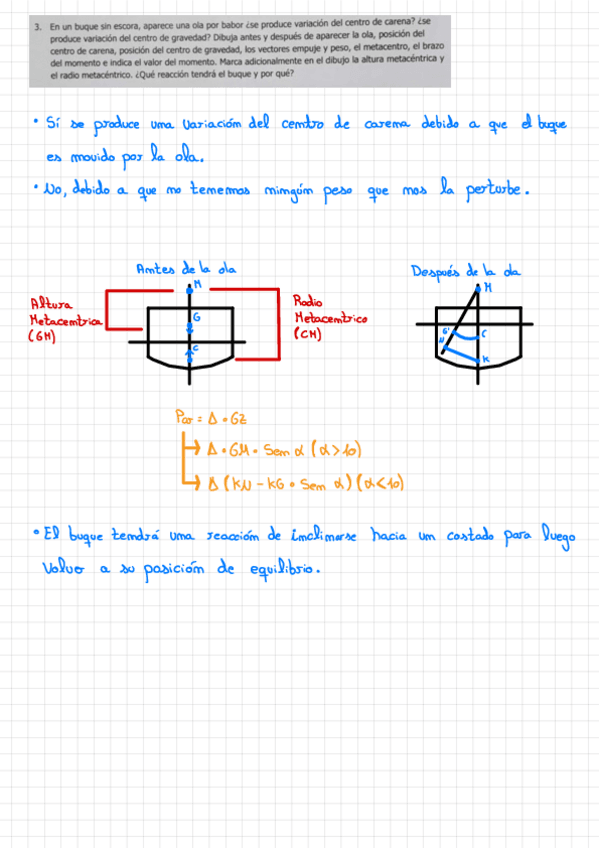 3. En un buque sin escora, aparece una ola por babor ¿se produce variación del centro de carena? ¿se
produce variación del centro de gravedad? Dibuja antes y después de aparecer la ola, posición del
centro de carena, posición del centro de gravedad, los vectores empuje y peso, el metacentro, el brazo
del momento e indica el valor del momento. Marca adicionalmente en el dibujo la altura metacéntrica y
el radio metacéntrico. ¿Qué reacción tendrá el buque y por qué?
• Sí se produce una variación del centro de carena debido a que el buque
es movido por la ola.
• No, debido a que no tenemos ningún peso que nos la perturbe.
Antes de la ola
Después de la ola
M
M
Altura
Metacentrica
(GM)
G
C
Radio
Metacentrico
(CM)
G'
C
N
K
Par = Δ • GZ
Δ • GM • Sen α (α>10)
Δ (KN - KG • Sen α) (α<10)
• El buque tendrá una reacción de inclinarse hacia un costado para luego
Volver a su posición de equilibrio.